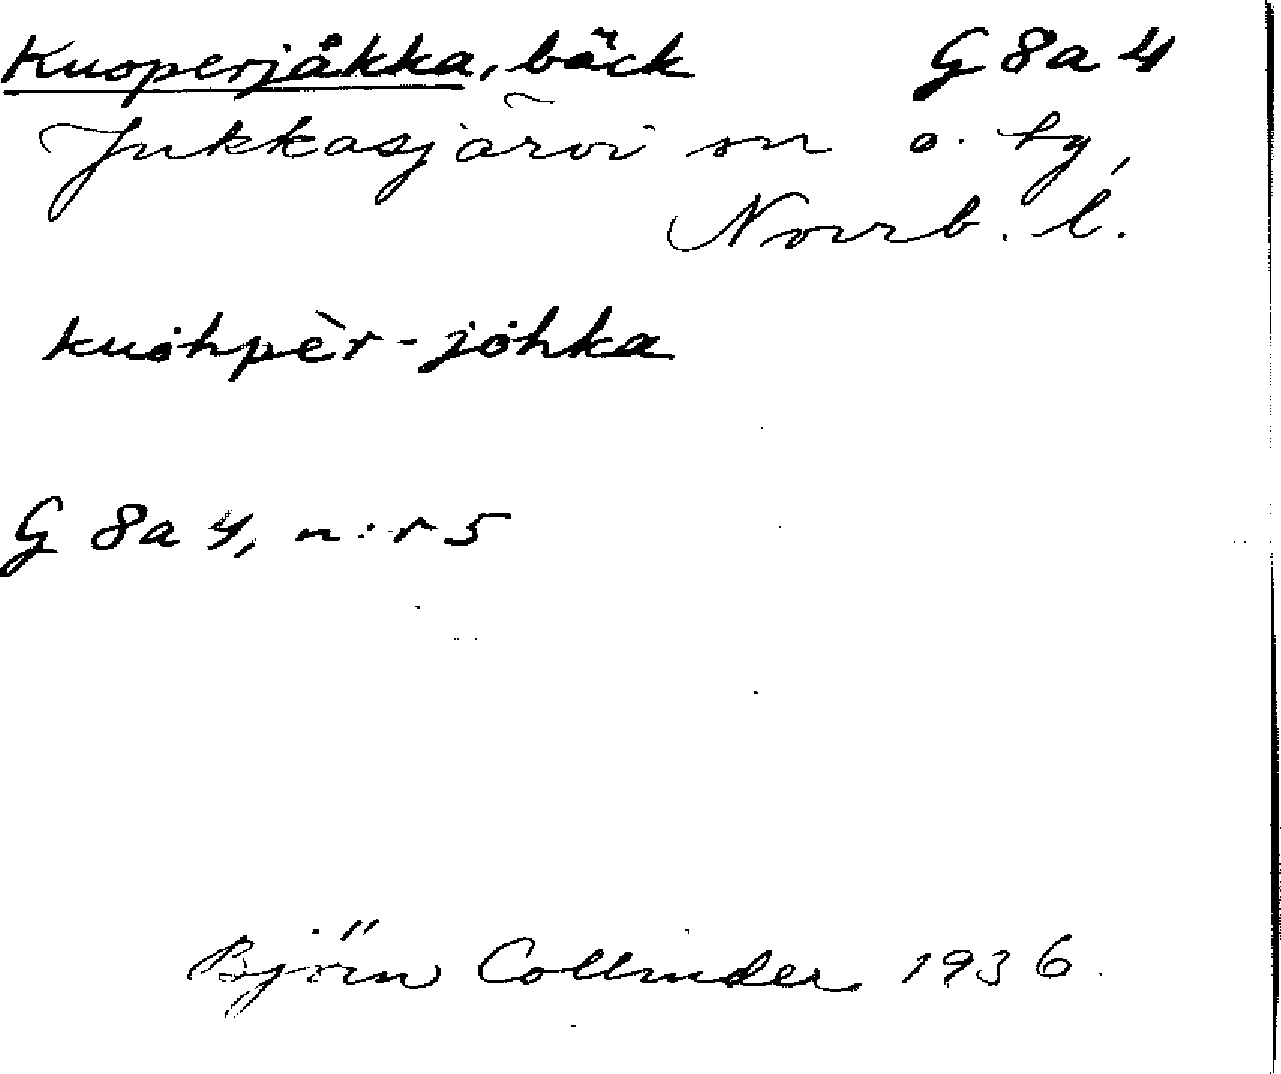 Kuoperjåkka, bäck G 8a 4
Jukkasjärvi sn o. tg,
Norrb. l.
kuȯhpèr-jȯhka
G 8a 4, n:r 5
Björn Collinder 1936